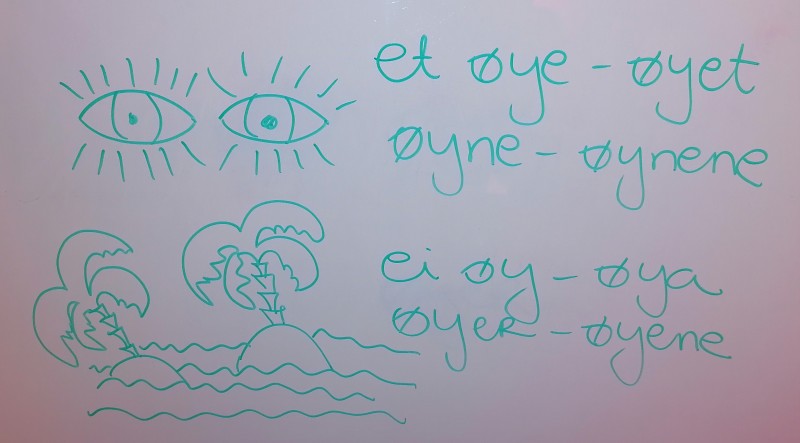 et øye - øyet
øyne - øynene
ei øy - øya
øyer - øyene